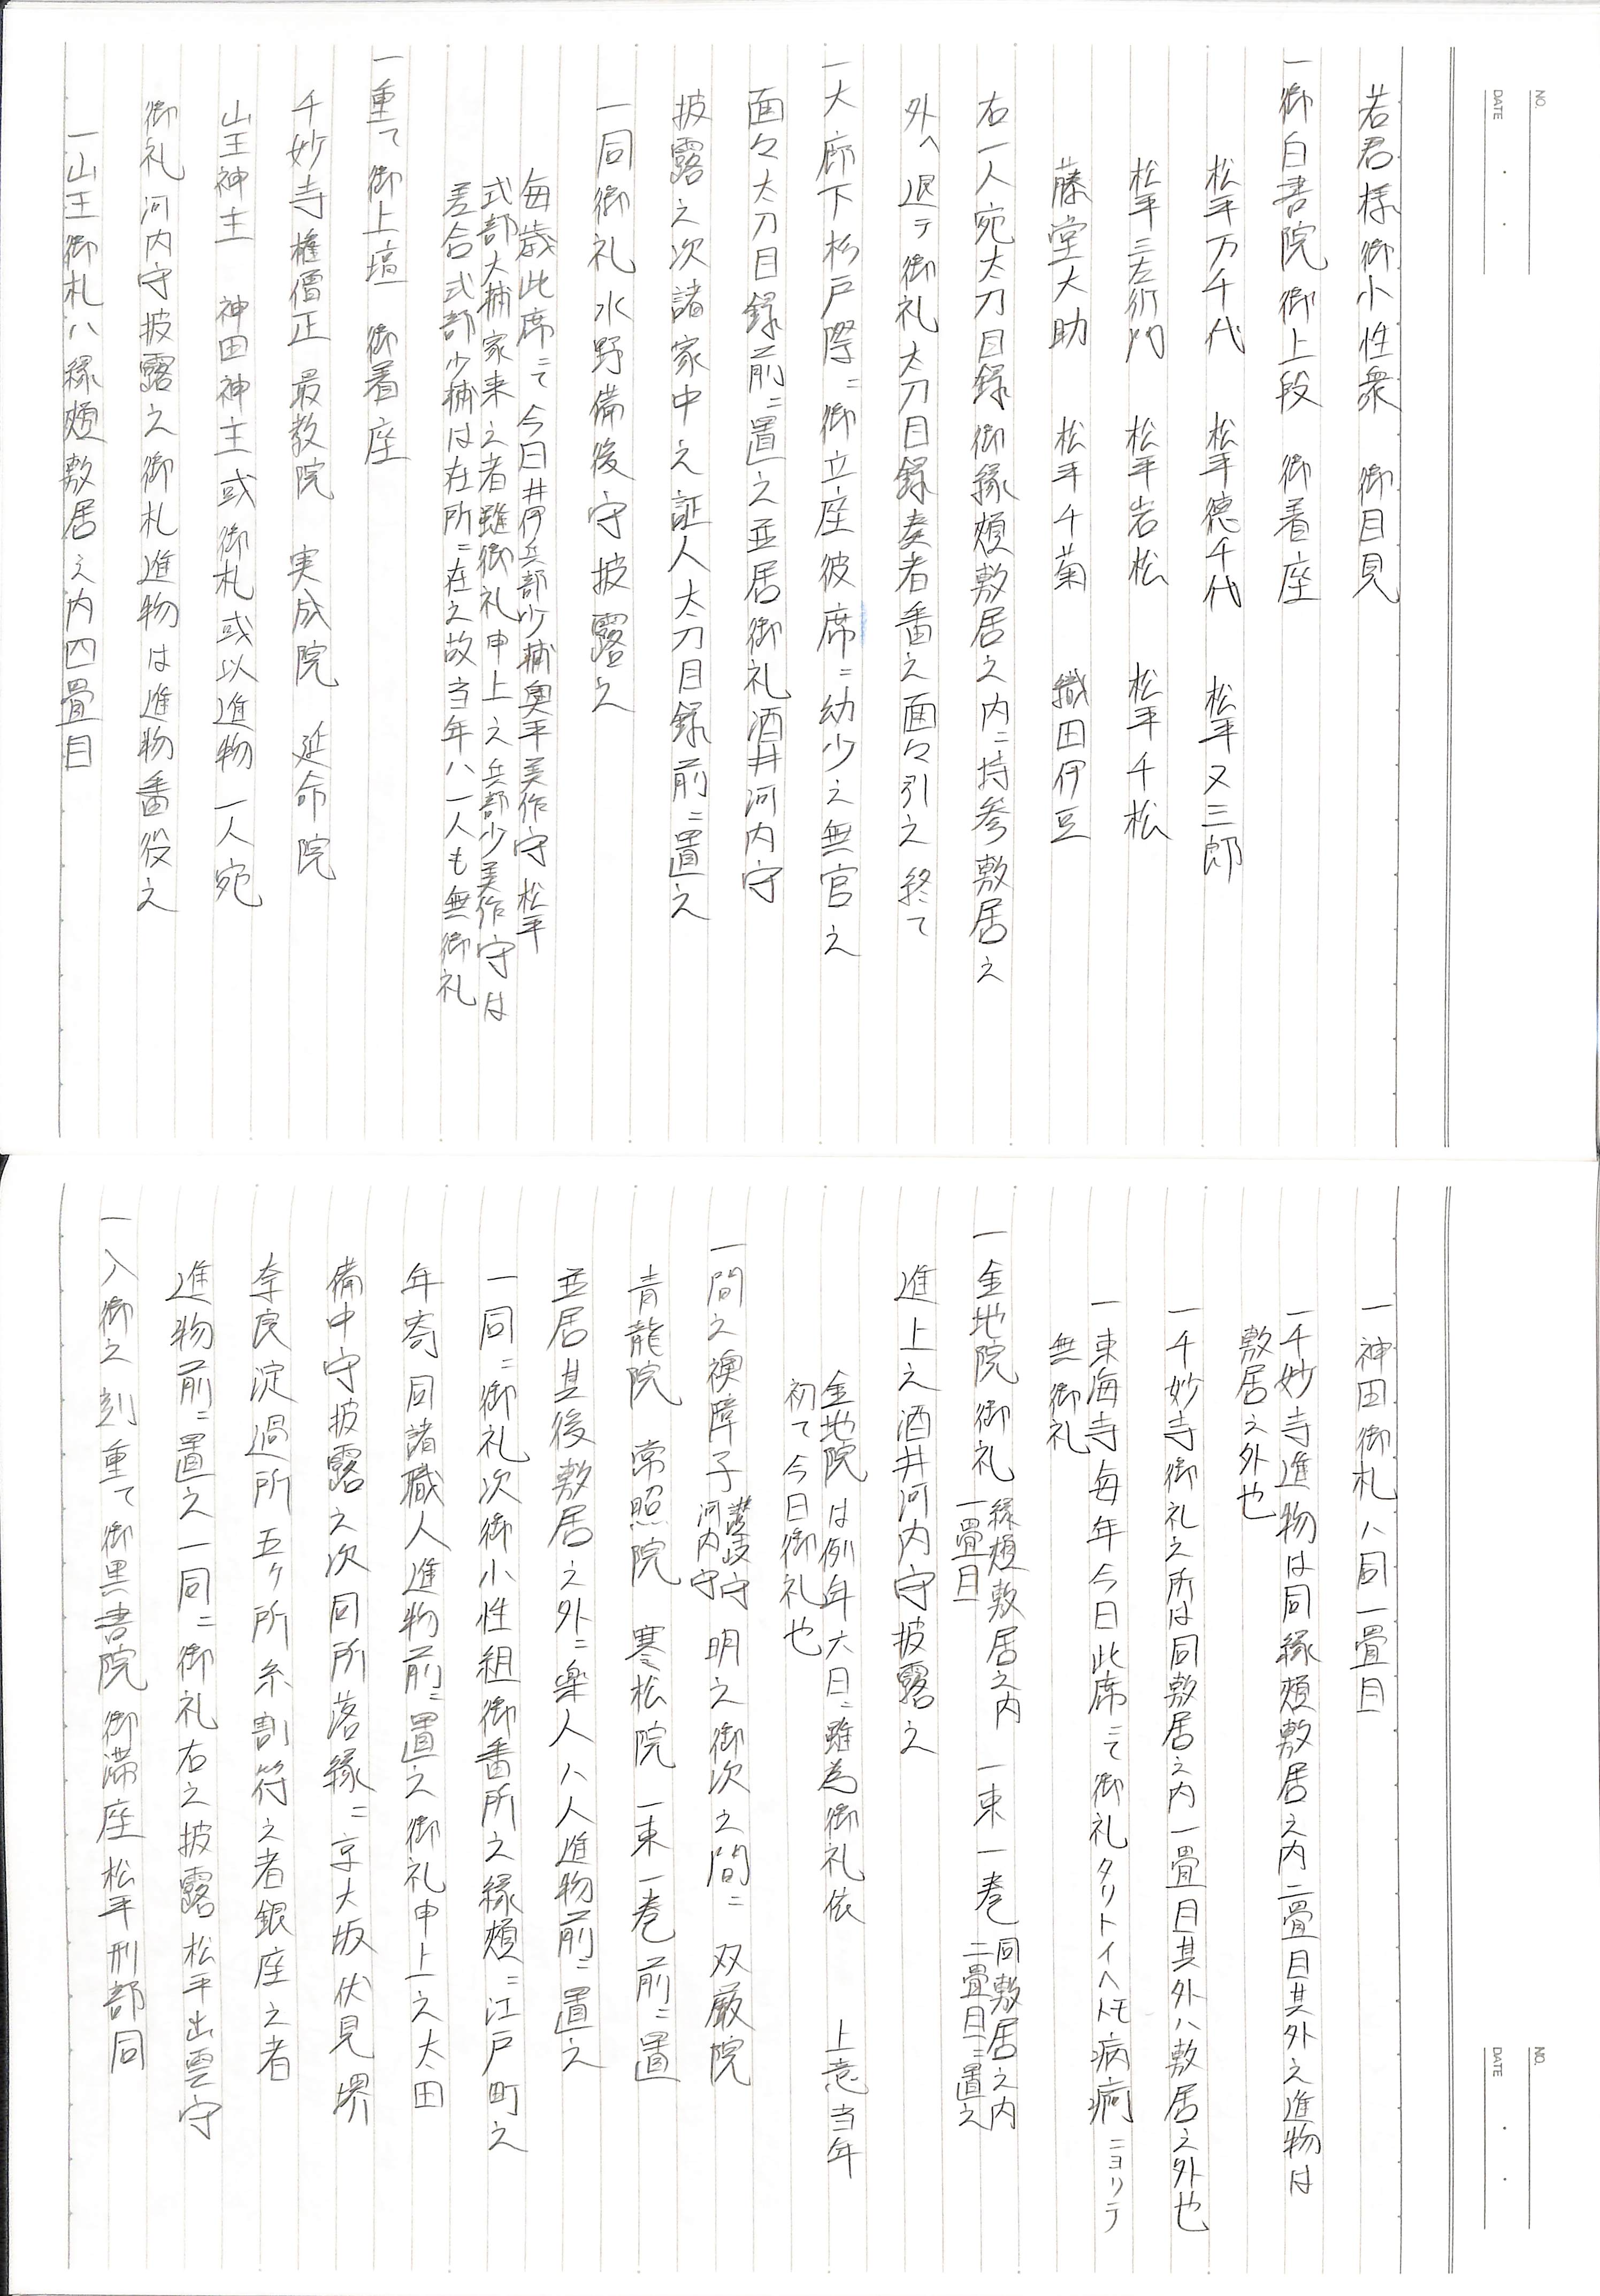 若君様御小性衆　御目見
一御白書院御上段　御着座
松平万千代　松平徳千代　松平又三郎
松平三左衛門　松平岩松　松平千松
藤堂大助　松平千菊　織田伊豆
右一人宛太刀目録御縁頬敷居之内ニ持参敷居之
外ヘ退テ御礼太刀目録奏者番之面々引之終て
一大廊下杉戸際ニ御立座彼席ニ幼少之無官之
面々太刀目録前ニ置之並居御礼酒井河内守
披露之次諸家中之証人太刀目録前ニ置之
一同御礼水野備後守披露之
毎歳此席ニて今日井伊兵部少輔奥平美作守松平
式部大輔家来之者雖御礼申上之兵部少美作守は
差合式部少輔は在所ニ在之故当年ハ一人も無御礼
一重て御上壇　御着座
千妙寺権僧正　最教院　実成院　延命院
山王神主　神田神主或御札或以進物一人宛
御礼河内守披露之御札進物は進物番役之
一山王御札ハ縁頬敷居之内四畳目
一神田御札ハ同一畳目
一千妙寺進物は同縁頬敷居之内二畳目其外之進物は
敷居之外也
一千妙寺御礼之所は同敷居之内一畳目其外ハ敷居之外也
一東海寺毎年今日此席ニて御礼タリトイヘトモ病痾ニヨリテ
無御礼
一金地院御礼　縁頬敷居之内一畳目　一束一巻　同敷居之内二畳目ニ置之
進上之酒井河内守披露之
金地院は例年六日ニ雖為御礼依　上意当年
初て今日御礼也
一間之襖障子　讃岐守河内守　明之御次之間ニ　双厳院
青龍院　常照院　寒松院　一束一巻前ニ置
並居其後敷居之外ニ楽人八人進物前ニ置之
一同ニ御礼次御小性組御番所之縁頬ニ江戸町之
年寄同諸職人進物前ニ置之御礼申上之太田
備中守披露之次同所落縁ニ京大坂伏見堺
奈良淀過所五ケ所糸割符之者銀座之者
進物前ニ置之一同ニ御礼右之披露松平出雲守
一入御之刻重て御黒書院御満座松平刑部同